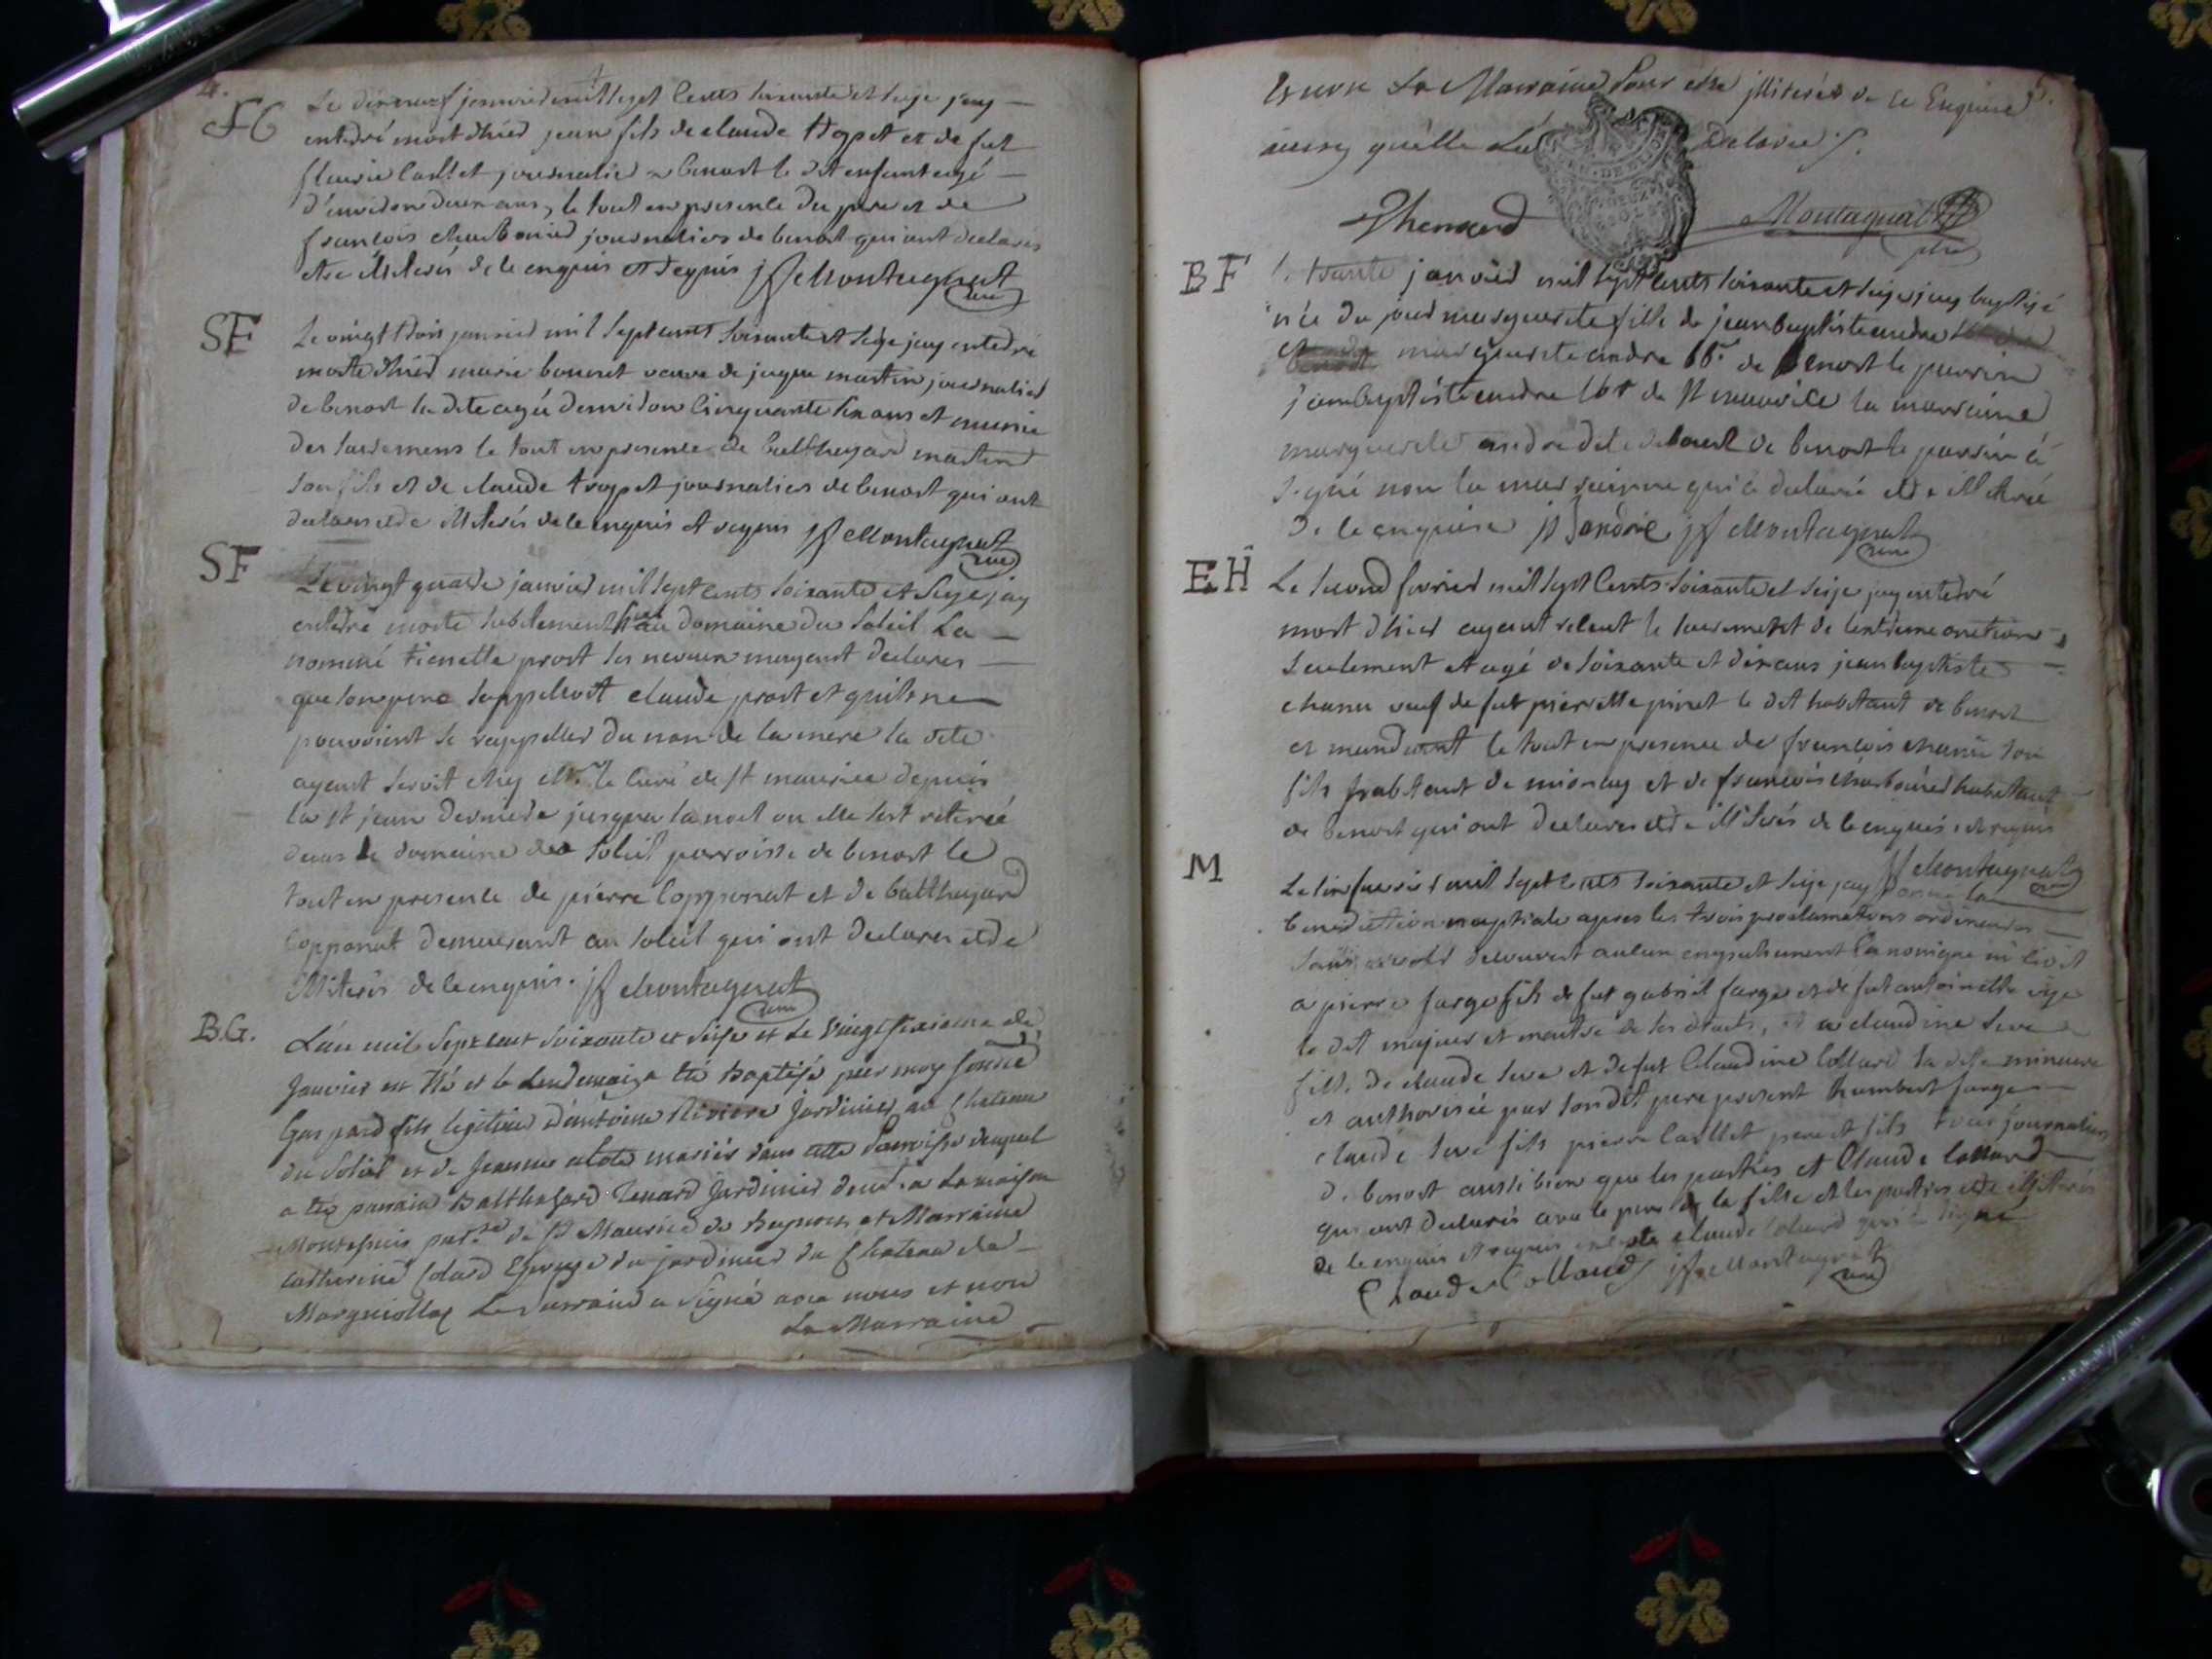 4.
SG
Le dixneuf janvier mil sept cents soixante et seize jay
enterré mort d'hier jean fils de claude tropet et de fut
fleurie caillet journalier a benost le dit enfant agé
d'environ deux ans, le tout en presence du pere et de
francois charbonier journaliers de benost qui ont declarés
etre illiterés de ce enquis et requis jf Montagnat
curé
SF
Le vingt trois janvier mil sept cents soixante et seize jay enterré
morte d'hier marie bonnet veuve de jaque martin journalier
de benost la dite agée denviron cinquante six ans et munie
des sacremens le tout en presence de balthazard martin
son fils et de claude tropet journaliers de benost qui ont
declarés etre illiterés de ce enquis et requis jf Montagnat
curé
SF
Le vingt quatre janvier mil sept cents soixante et seize jay
enterré morte subitement hier au domaine du soleil La
nommé tienette prost ses neveux mayant declarés
que son pere sappelloit claude prost et quils ne
pouvoient se rappeller du nom de la mere la dite
ayant servit chez Mr. le curé de st maurice depuis
la st jean derniere jusqua la noel ou elle sest retirée
dans le domaine du soleil parroisse de benost le
tout en presence de pierre Copponat et de balthazard
Copponat demeurant au soleil qui ont declarés etre
illiterés de ce enquis. jf Montagnat
curé
B.G.
L'an mil sept cent soixante et seise et le vingt sixieme de
Janvier est né et le lendemain a été baptisé par moy sousné
Gaspard fils legitime d'antoine Riviere Jardinier au chateau
du Soliat et de Jeanne mariés dans cette Parroisse duquel
a été parrain Balthasard Jardinier de la maison
Montepin par.sse de St Maurice de Beynost et Marraine
Catherine Colard Epouse du jardinier du chateau de
Margniollaz Le Parrain a signé avec nous et non
La Marraine
5.
et non La Marraine Pour etre illiterée de ce Enquise
ainsy qu'elle La Declaré
Thenard
Montagnat
ptre
BF
le trante janvier mil sept cents soixante et seize jay baptizé
née du jour marguerite fille de jean baptiste andre
et marguerite andre de benost le parrain
jean baptiste andre de st maurice la marraine
marguerite andre de benost le parrain à
signé non la marrainne qui à declarée etre illiterée
de ce enquise jB andre jf Montagnat
curé
EH
Le second fevrier mil sept cents soixante et seize jay enterré
mort d'hier ayant reçut le sacrement de lextreme onction
seulement et agé de soixante et dix ans jean baptiste
chanu veuf de fut pierrette pinet le dit habitant de benost
et mandiant le tout en presence de francois chanu son
fils habitant de mionay et de francois charbonier habitant
de benost qui ont declarés etre illiterés de ce enquis et requis
jf Montagnat
curé
M
Le six fevrier mil sept cents soixante et seize jay donné la
benediction nuptiale apres les trois proclamations ordinaires
sans avoir decouvert aucun empechement Canonique ni civil
a pierre farge fils de fut gabriel farge et de fut antoinette
le dit majeur et maitre de ses droits, et a claudine seve
fille de claude seve et de fut Claudine Collard la ditte mineure
et authorisée par son dit pere present humbert farge
claude seve fils pierre caillet pere et fils tous journaliers
de benost aussi bien que les parties et Claude Collard
qui ont declarés avec le pere de la fille et les parties etre illiterés
de ce enquis et requis claude Colard qui a signé
Claude Collard jf Montagnat
curé